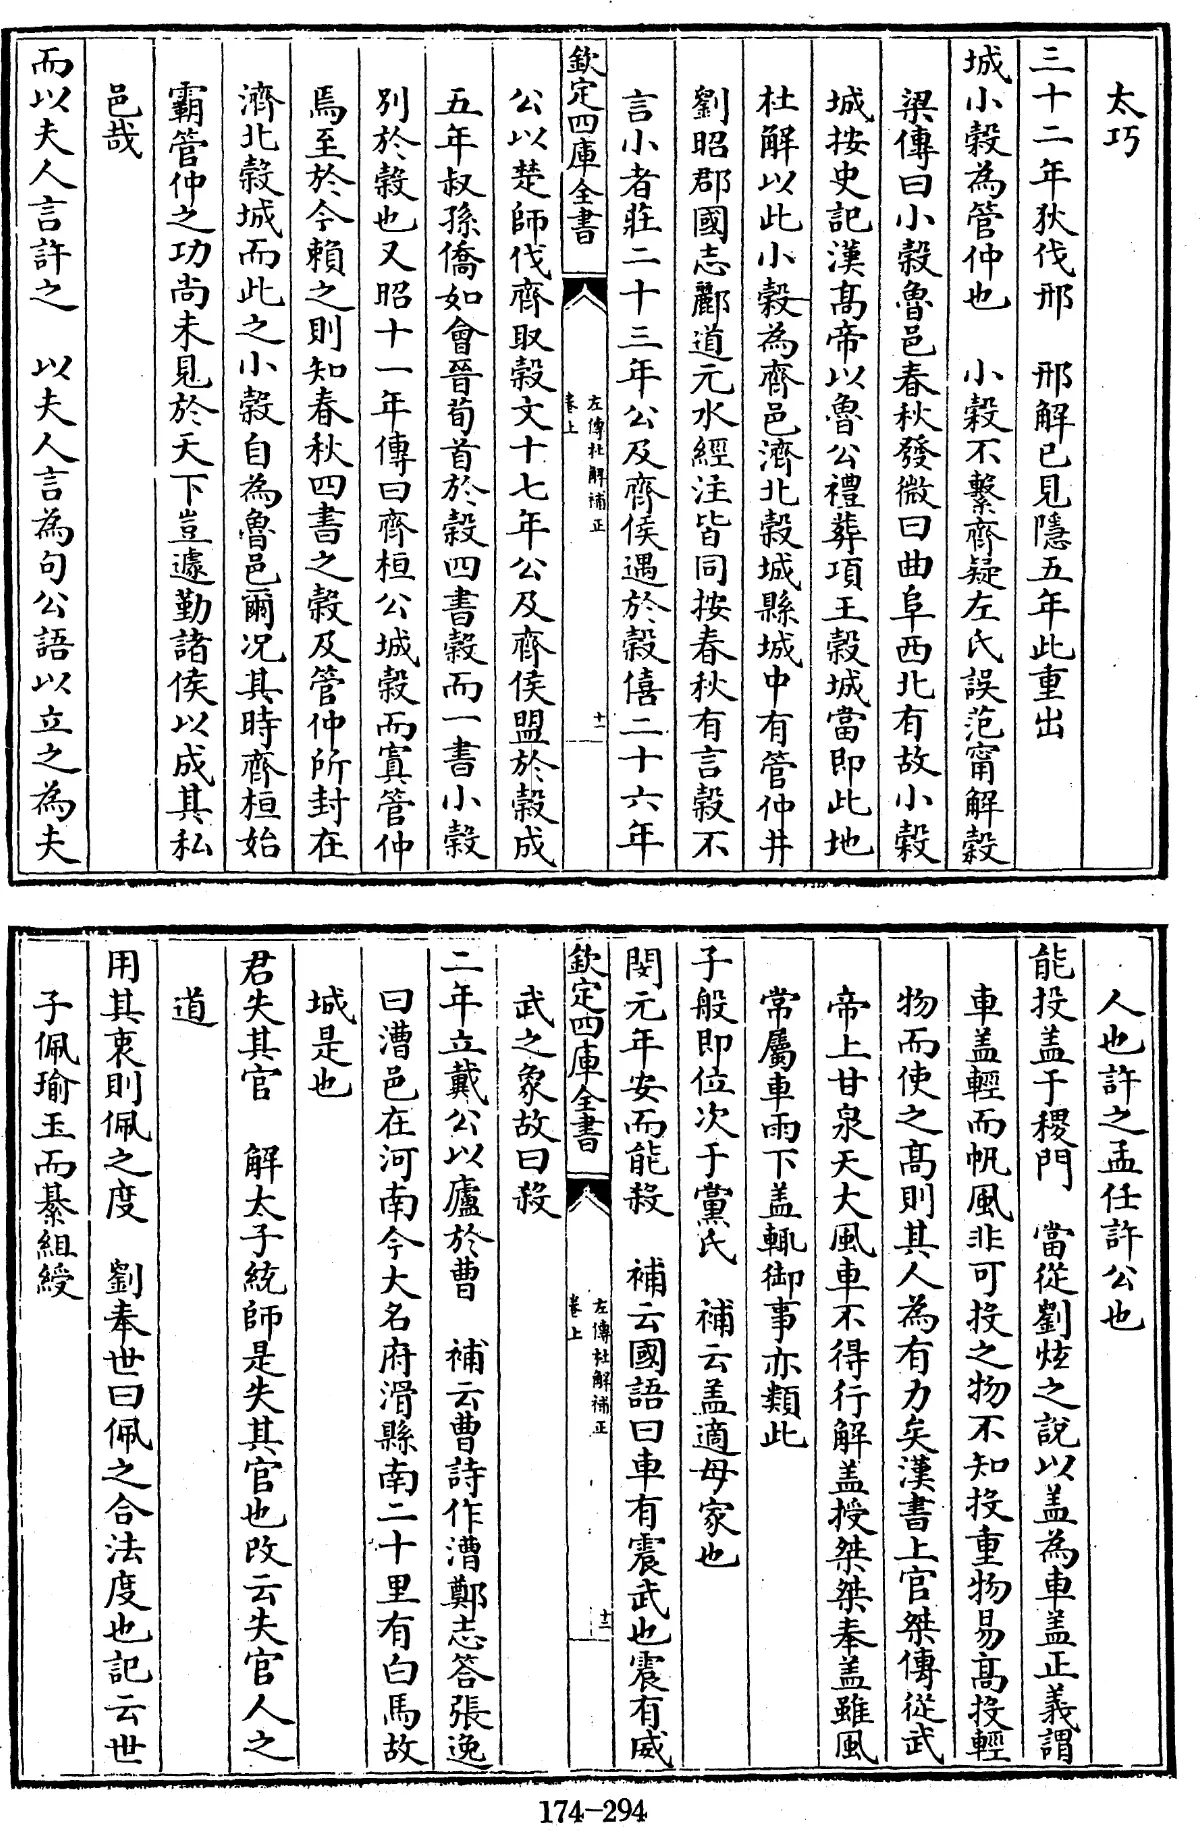 太巧
三十二年狄伐邢　邢解已見隱五年此重出
城小穀為管仲也　小穀不繫齊疑左氏誤范甯解穀
梁傳曰小穀魯邑春秋發微曰曲阜西北有故小穀
城按史記漢髙帝以魯公禮葬項王穀城當即此地
杜解以此小穀為齊邑濟北穀城縣城中有管仲井
劉昭郡國志酈道元水經注皆同按春秋有言穀不
言小者莊二十三年公及齊侯遇於穀僖二十六年
欽定四庫全書
左傳杜解補正
卷上
十一
公以楚師伐齊取穀文十七年公及齊侯盟於穀成
五年叔孫僑如會晉荀首於穀四書穀而一書小穀
別於穀也又昭十一年傳曰齊桓公城穀而寘管仲
焉至於今賴之則知春秋四書之穀及管仲所封在
濟北穀城而此之小穀自為魯邑爾况其時齊桓始
霸管仲之功尚未見於天下豈遽勤諸侯以成其私
邑哉
而以夫人言許之　以夫人言為句公語以立之為夫
人也許之孟任許公也
能投盖于稷門　當從劉炫之說以盖為車盖正義謂
車盖輕而帆風非可投之物不知投重物易髙投輕
物而使之髙則其人為有力矣漢書上官桀傳從武
帝上甘泉天大風車不得行解盖授桀桀奉盖雖風
常屬車雨下盖輒御事亦類此
子般即位次于黨氏　補云盖適母家也
閔元年安而能殺　補云國語曰車有震武也震有威
欽定四庫全書
左傳杜解補正
卷上
十二
武之象故曰殺
二年立戴公以廬於曹　補云曹詩作漕鄭志答張逸
曰漕邑在河南今大名府滑縣南二十里有白馬故
城是也
君失其官　解太子統師是失其官也改云失官人之
道
用其衷則佩之度　劉奉世曰佩之合法度也記云世
子佩瑜玉而綦組綬
174-294